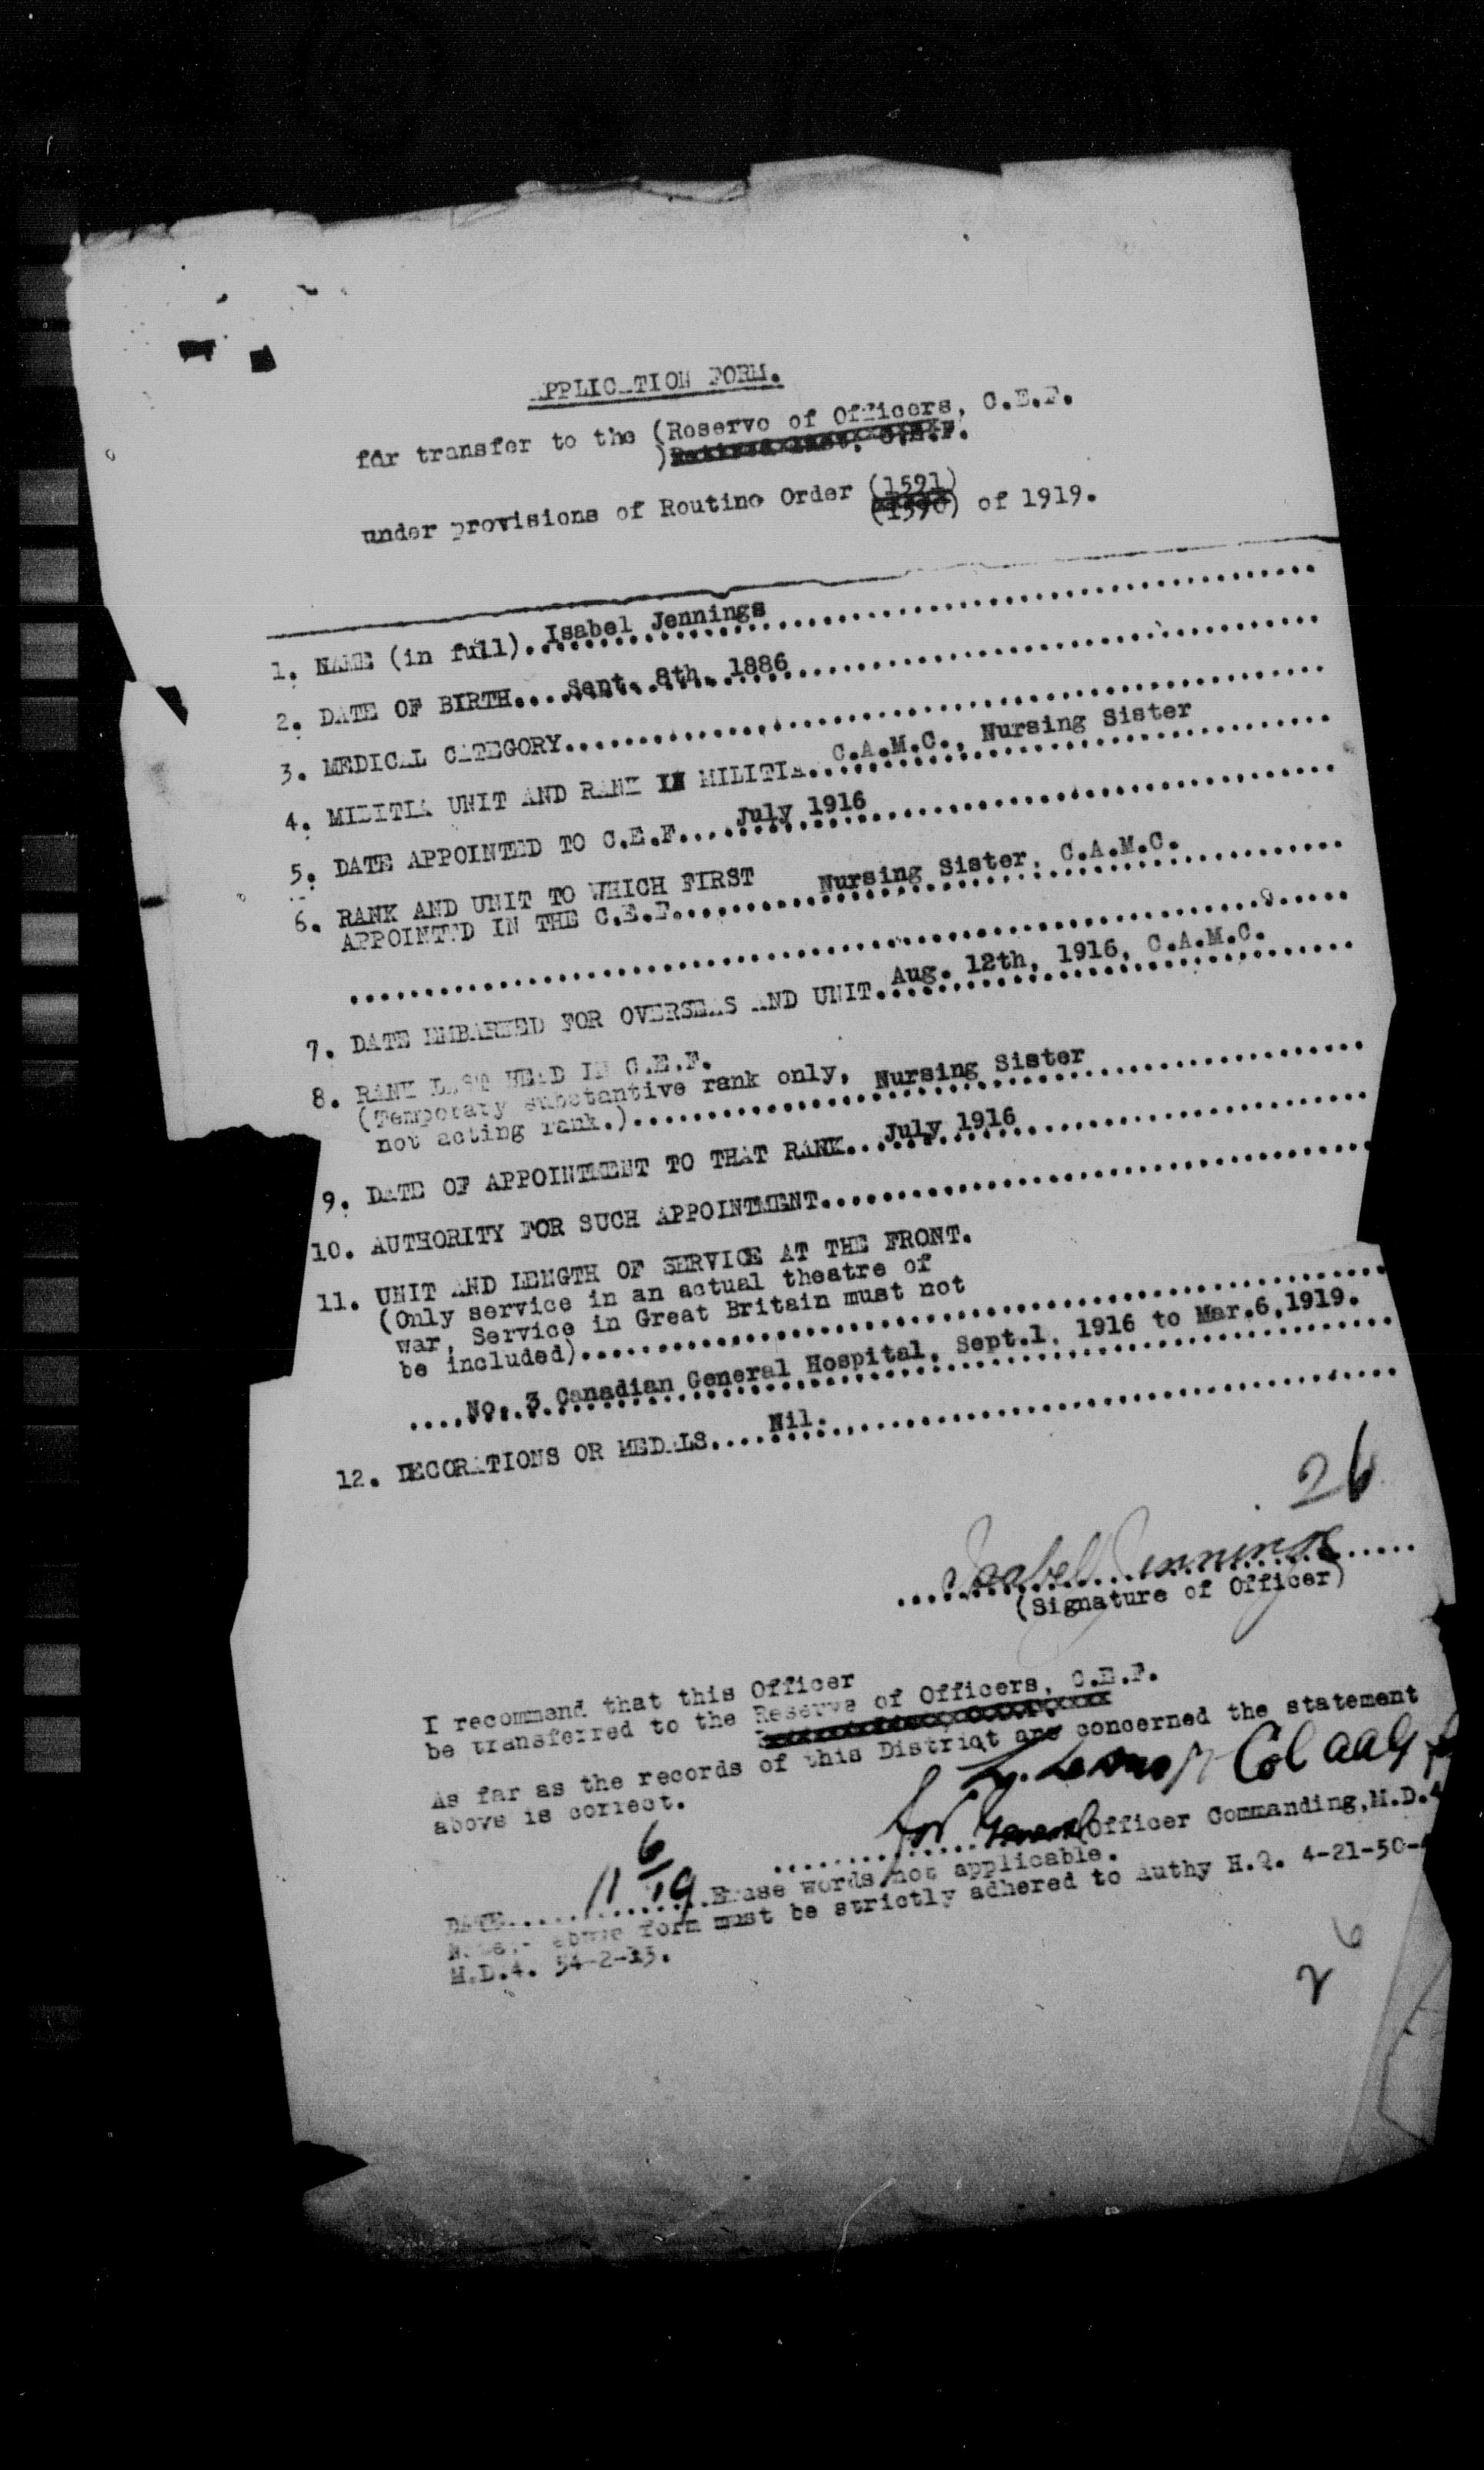 APPLICATION FORM.
for transfer to the (Reserve of Officers, C.E.F.
)Retired List, C.E.F.
under provisions of Routine Order (1591)
(1590) of 1919.
1. NAME (in full). Isabel Jennings
2. DATE OF BIRTH.... Sept. 8th, 1886
3. MEDICAL CATEGORY....
4. MILITIA UNIT AND RANK IN MILITIA. C.A.M.C., Nursing Sister
5. DATE APPOINTED TO C.E.F.... July 1916
6. RANK AND UNIT TO WHICH FIRST
APPOINTED IN THE C.E.F.... Nursing Sister, C.A.M.C.
7. DATE EMBARKED FOR OVERSEAS AND UNIT. Aug. 12th, 1916, C.A.M.C.
8. RANK LAST HELD IN C.E.F.
(Temporary substantive rank only,
not acting rank.).... Nursing Sister
9. DATE OF APPOINTMENT TO THAT RANK... July 1916
10. AUTHORITY FOR SUCH APPOINTMENT....
11. UNIT AND LENGTH OF SERVICE AT THE FRONT.
(Only service in an actual theatre of
war, Service in Great Britain must not
be included)....
....No. 3 Canadian General Hospital, Sept.1, 1916 to Mar.6,1919.
12. DECORATIONS OR MEDALS.... Nil.
26
Isabel Jennings
(Signature of Officer)
I recommend that this Officer
be transferred to the Reserve of Officers, C.E.F.
As far as the records of this District are concerned the statement
above is correct.
Col aag
for General Officer Commanding, M.D.4
DATE... 11/6/19 Erase words not applicable.
Note.- above form must be strictly adhered to Authy H.Q. 4-21-50-
M.D.4. 54-2-13.
6
2